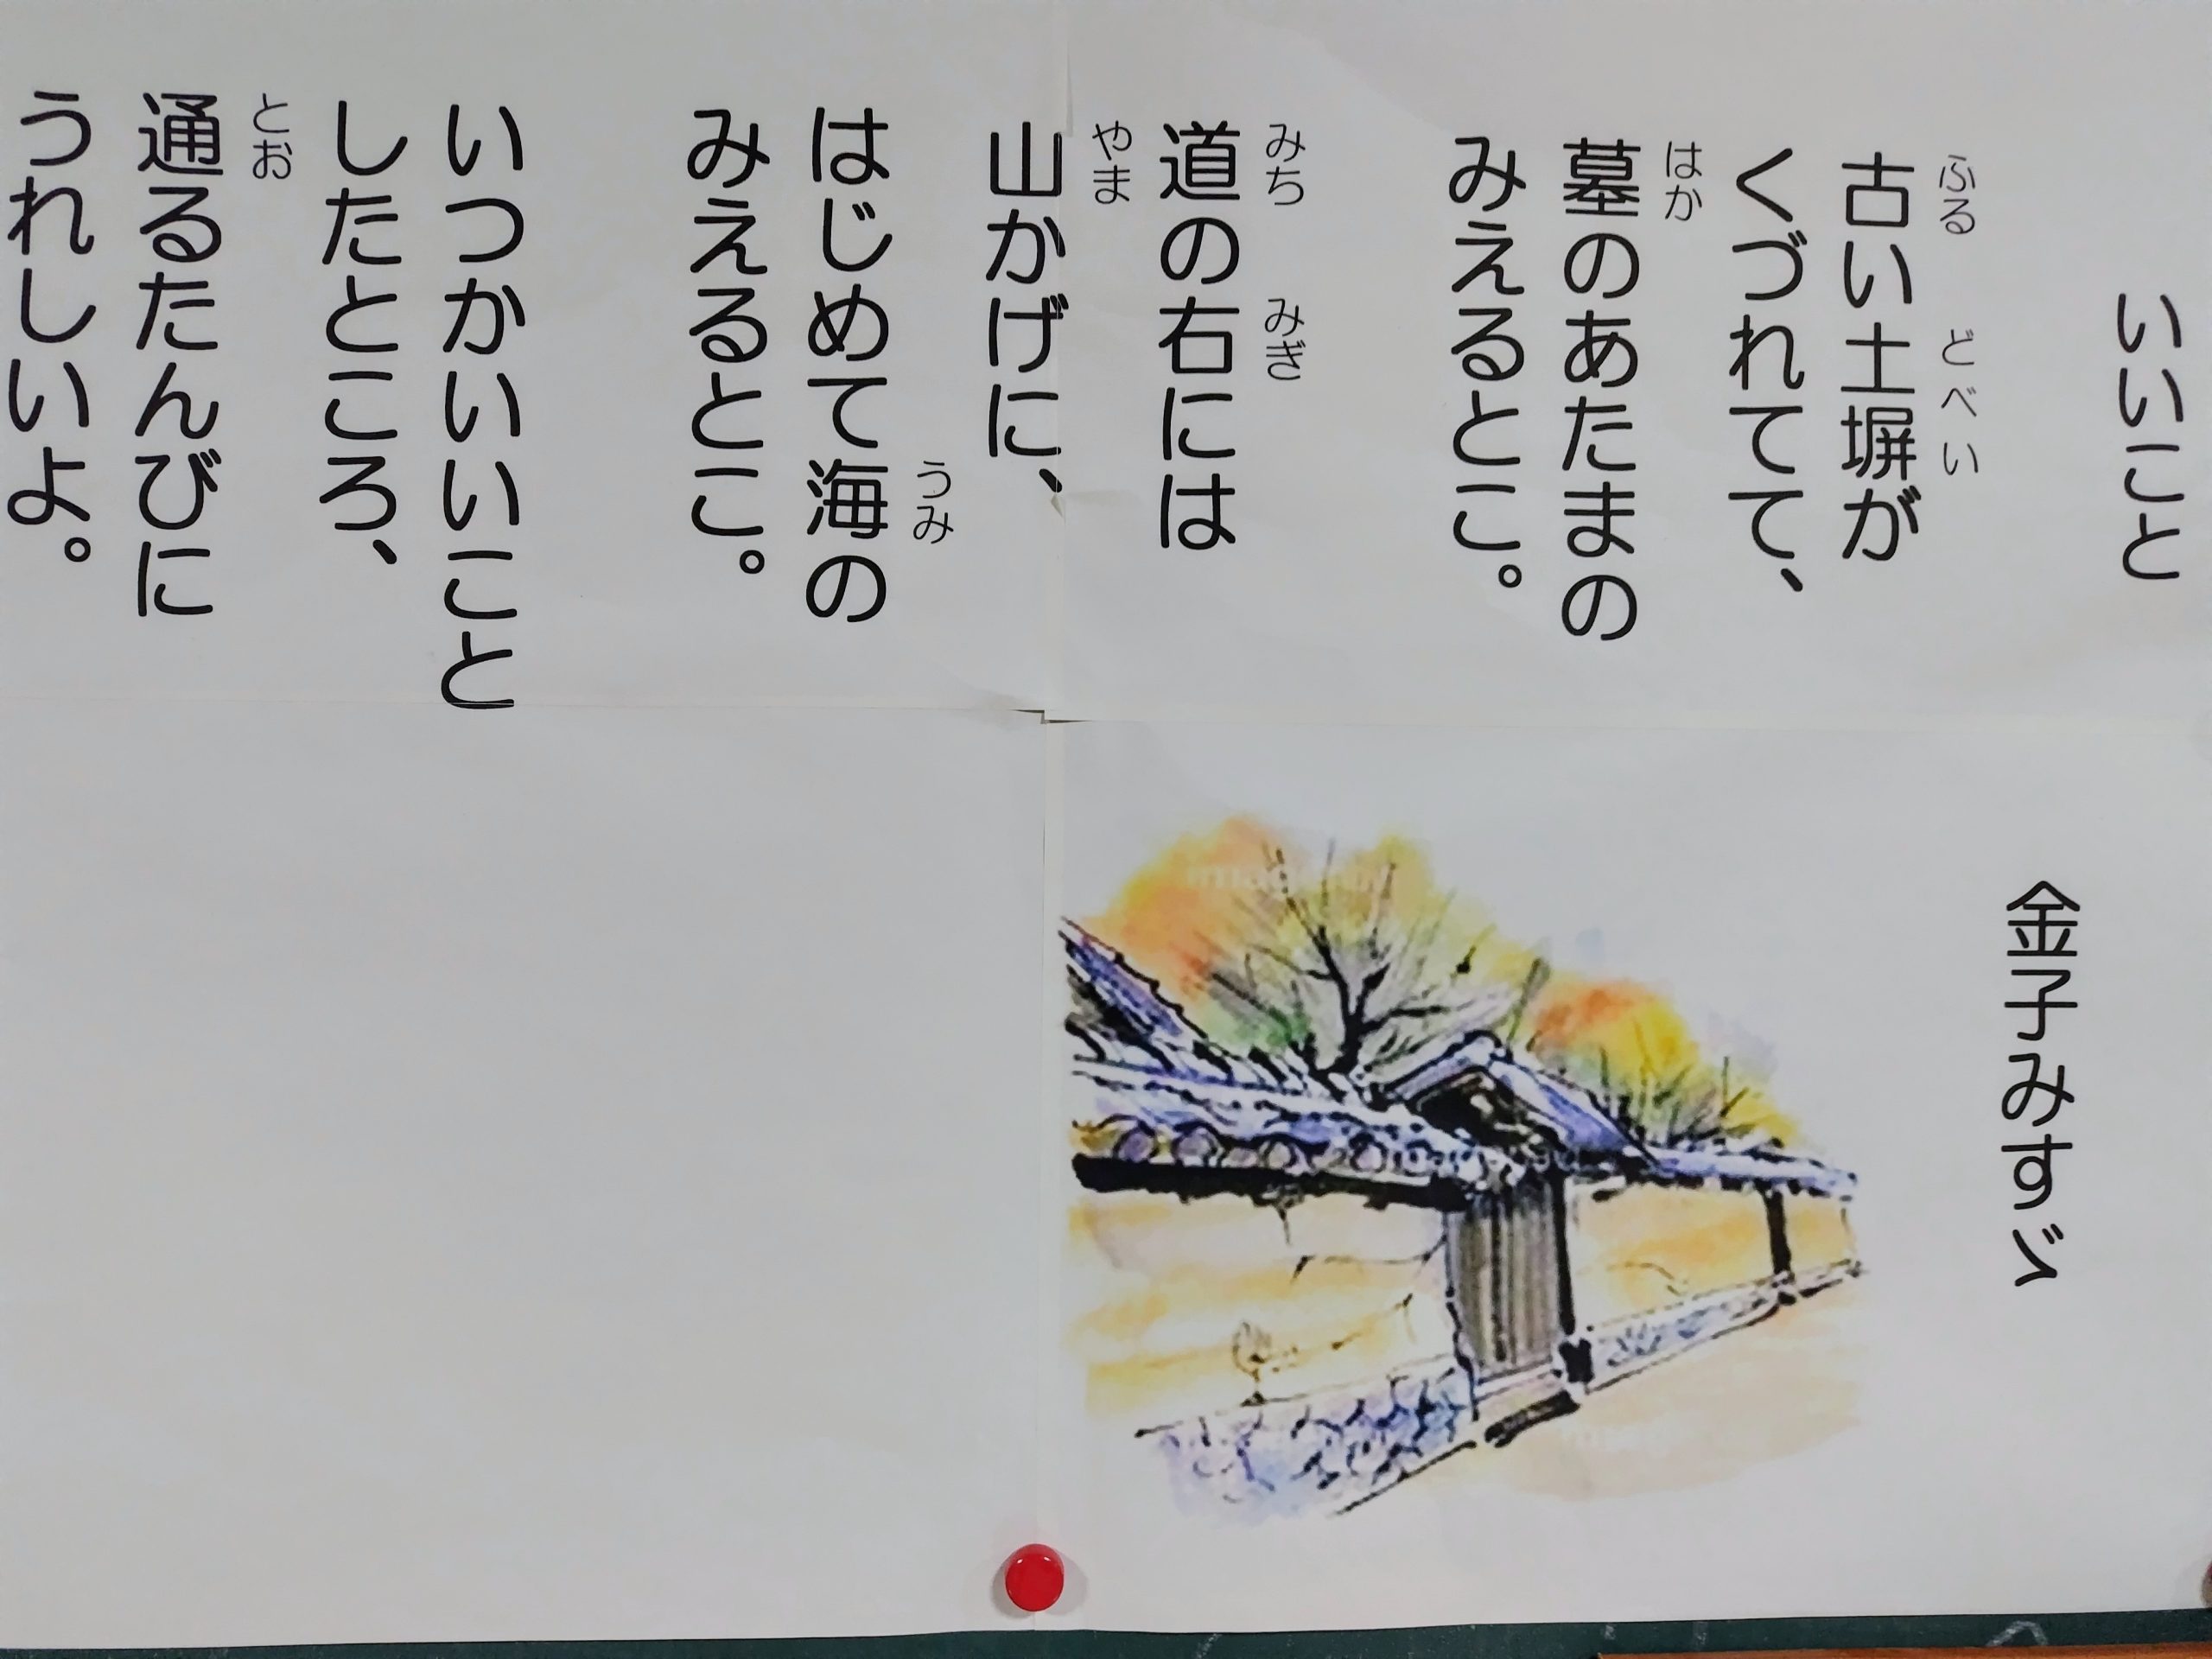 いいこと
金子みすゞ
古い土塀が
くづれてて、
墓のあたまの
みえるとこ。
道の右には
山かげに、
はじめて海の
みえるとこ。
いつかいいこと
したところ、
通るたんびに
うれしいよ。
ふる
どべい
はか
みち
みぎ
やま
うみ
とお